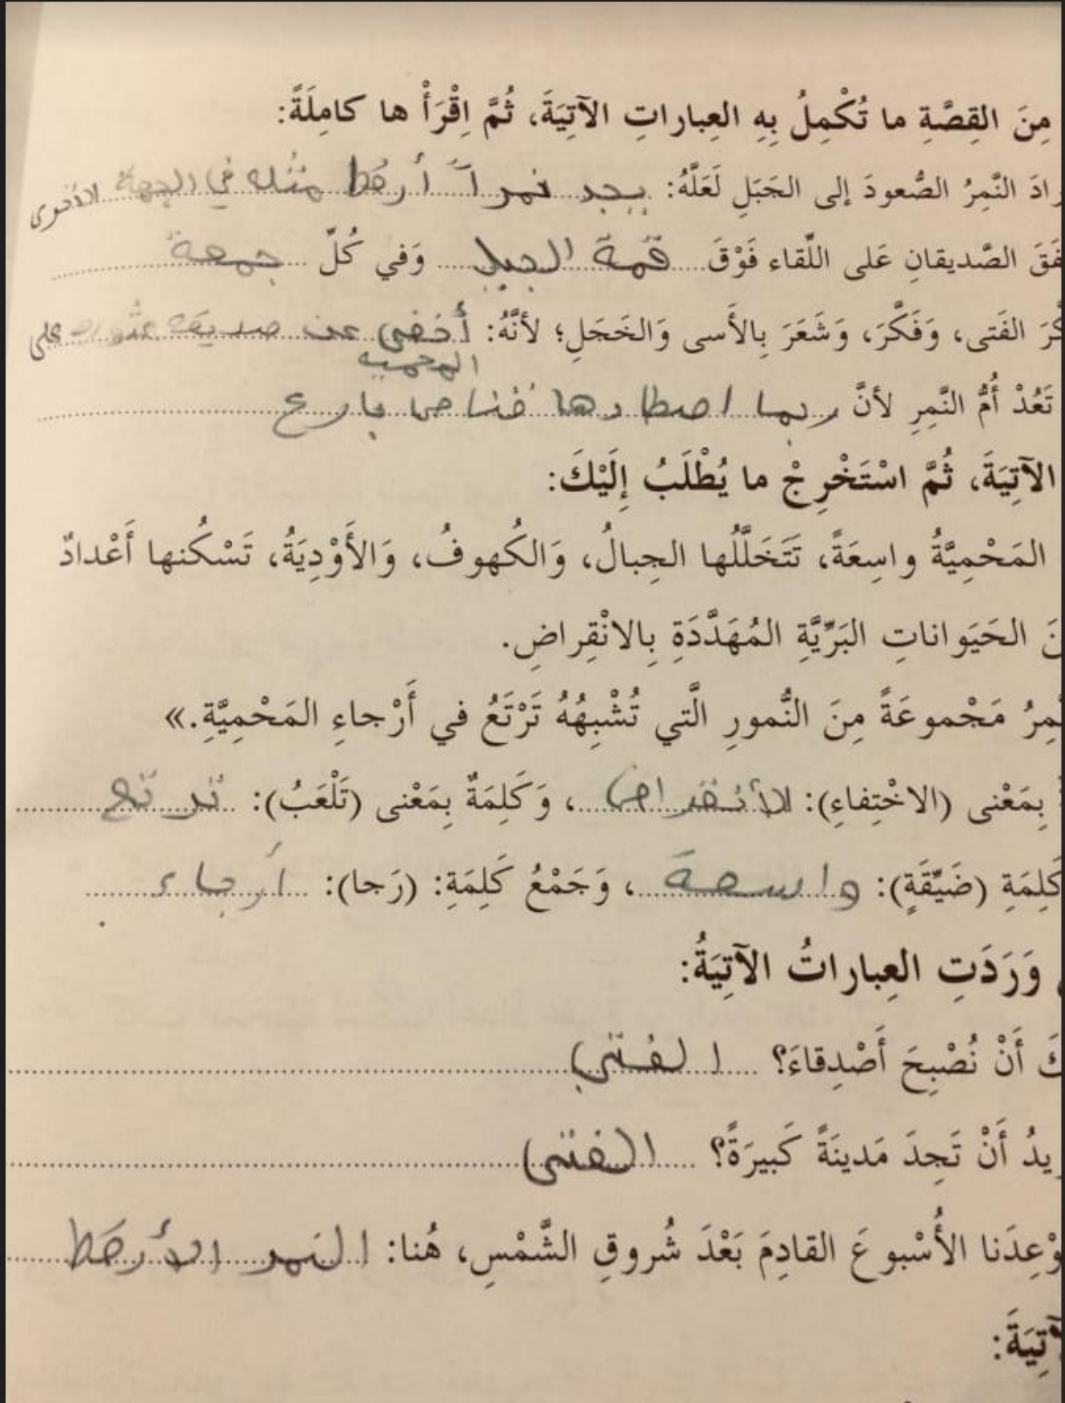 مِنَ القِصَّةِ ما تُكْمِلُ بِهِ العِباراتِ الآتِيَةَ، ثُمَّ اِقْرَأْ ها كامِلَةً:
رادَ النَّمِرُ الصُّعودَ إلى الجَبَلِ لَعَلَّهُ: يجد نمراً أرقط مثله في الجهة الأخرى
فَقَ الصَّديقانِ عَلى اللِّقاء فَوْقَ قمة الجبل وَفي كُلّ جمعة
كَّرَ الفَتى، وَفَكَّرَ، وَشَعَرَ بِالأَسى وَالخَجَلِ؛ لأنَّهُ: أخفى عن صديقه عثوره على
المحمية
تَعُدْ أُمُّ النَّمِرِ لأنَّ ربما اصطادها قناص بارع
الآتِيَةَ، ثُمَّ اسْتَخْرِجْ ما يُطْلَبُ إلَيْكَ:
المَحْمِيَّةُ واسِعَةً، تَتَخَلَّلُها الجِبالُ، وَالكُهوفُ، وَالأَوْدِيَةُ، تَسْكُنها أَعْدادٌ
نَ الحَيَواناتِ البَرِّيَّةِ المُهَدَّدَةِ بِالانْقِراضِ.
مِرُ مَجْموعَةً مِنَ النُّمورِ الَّتي تُشْبِهُهُ تَرْتَعُ في أَرْجاءِ المَحْمِيَّةِ.»
بِمَعْنى (الاخْتِفاءِ): الأنقراض، وَكَلِمَةٌ بِمَعْنى (تَلْعَبُ): ترتع
كَلِمَةِ (ضَيِّقَةٍ): واسعة، وَجَمْعُ كَلِمَةِ: (رَجا): أرجاء
وَرَدَتِ العِباراتُ الآتِيَةُ:
كَ أَنْ نُصْبِحَ أَصْدِقاءَ؟ الفتى
يدُ أَنْ تَجِدَ مَدينَةً كَبيرَةً؟ الفتى
وْعِدَنا الأُسْبوعَ القادِمَ بَعْدَ شُروقِ الشَّمْسِ، هُنا: النمر الأرقط
لآتِيَةَ: